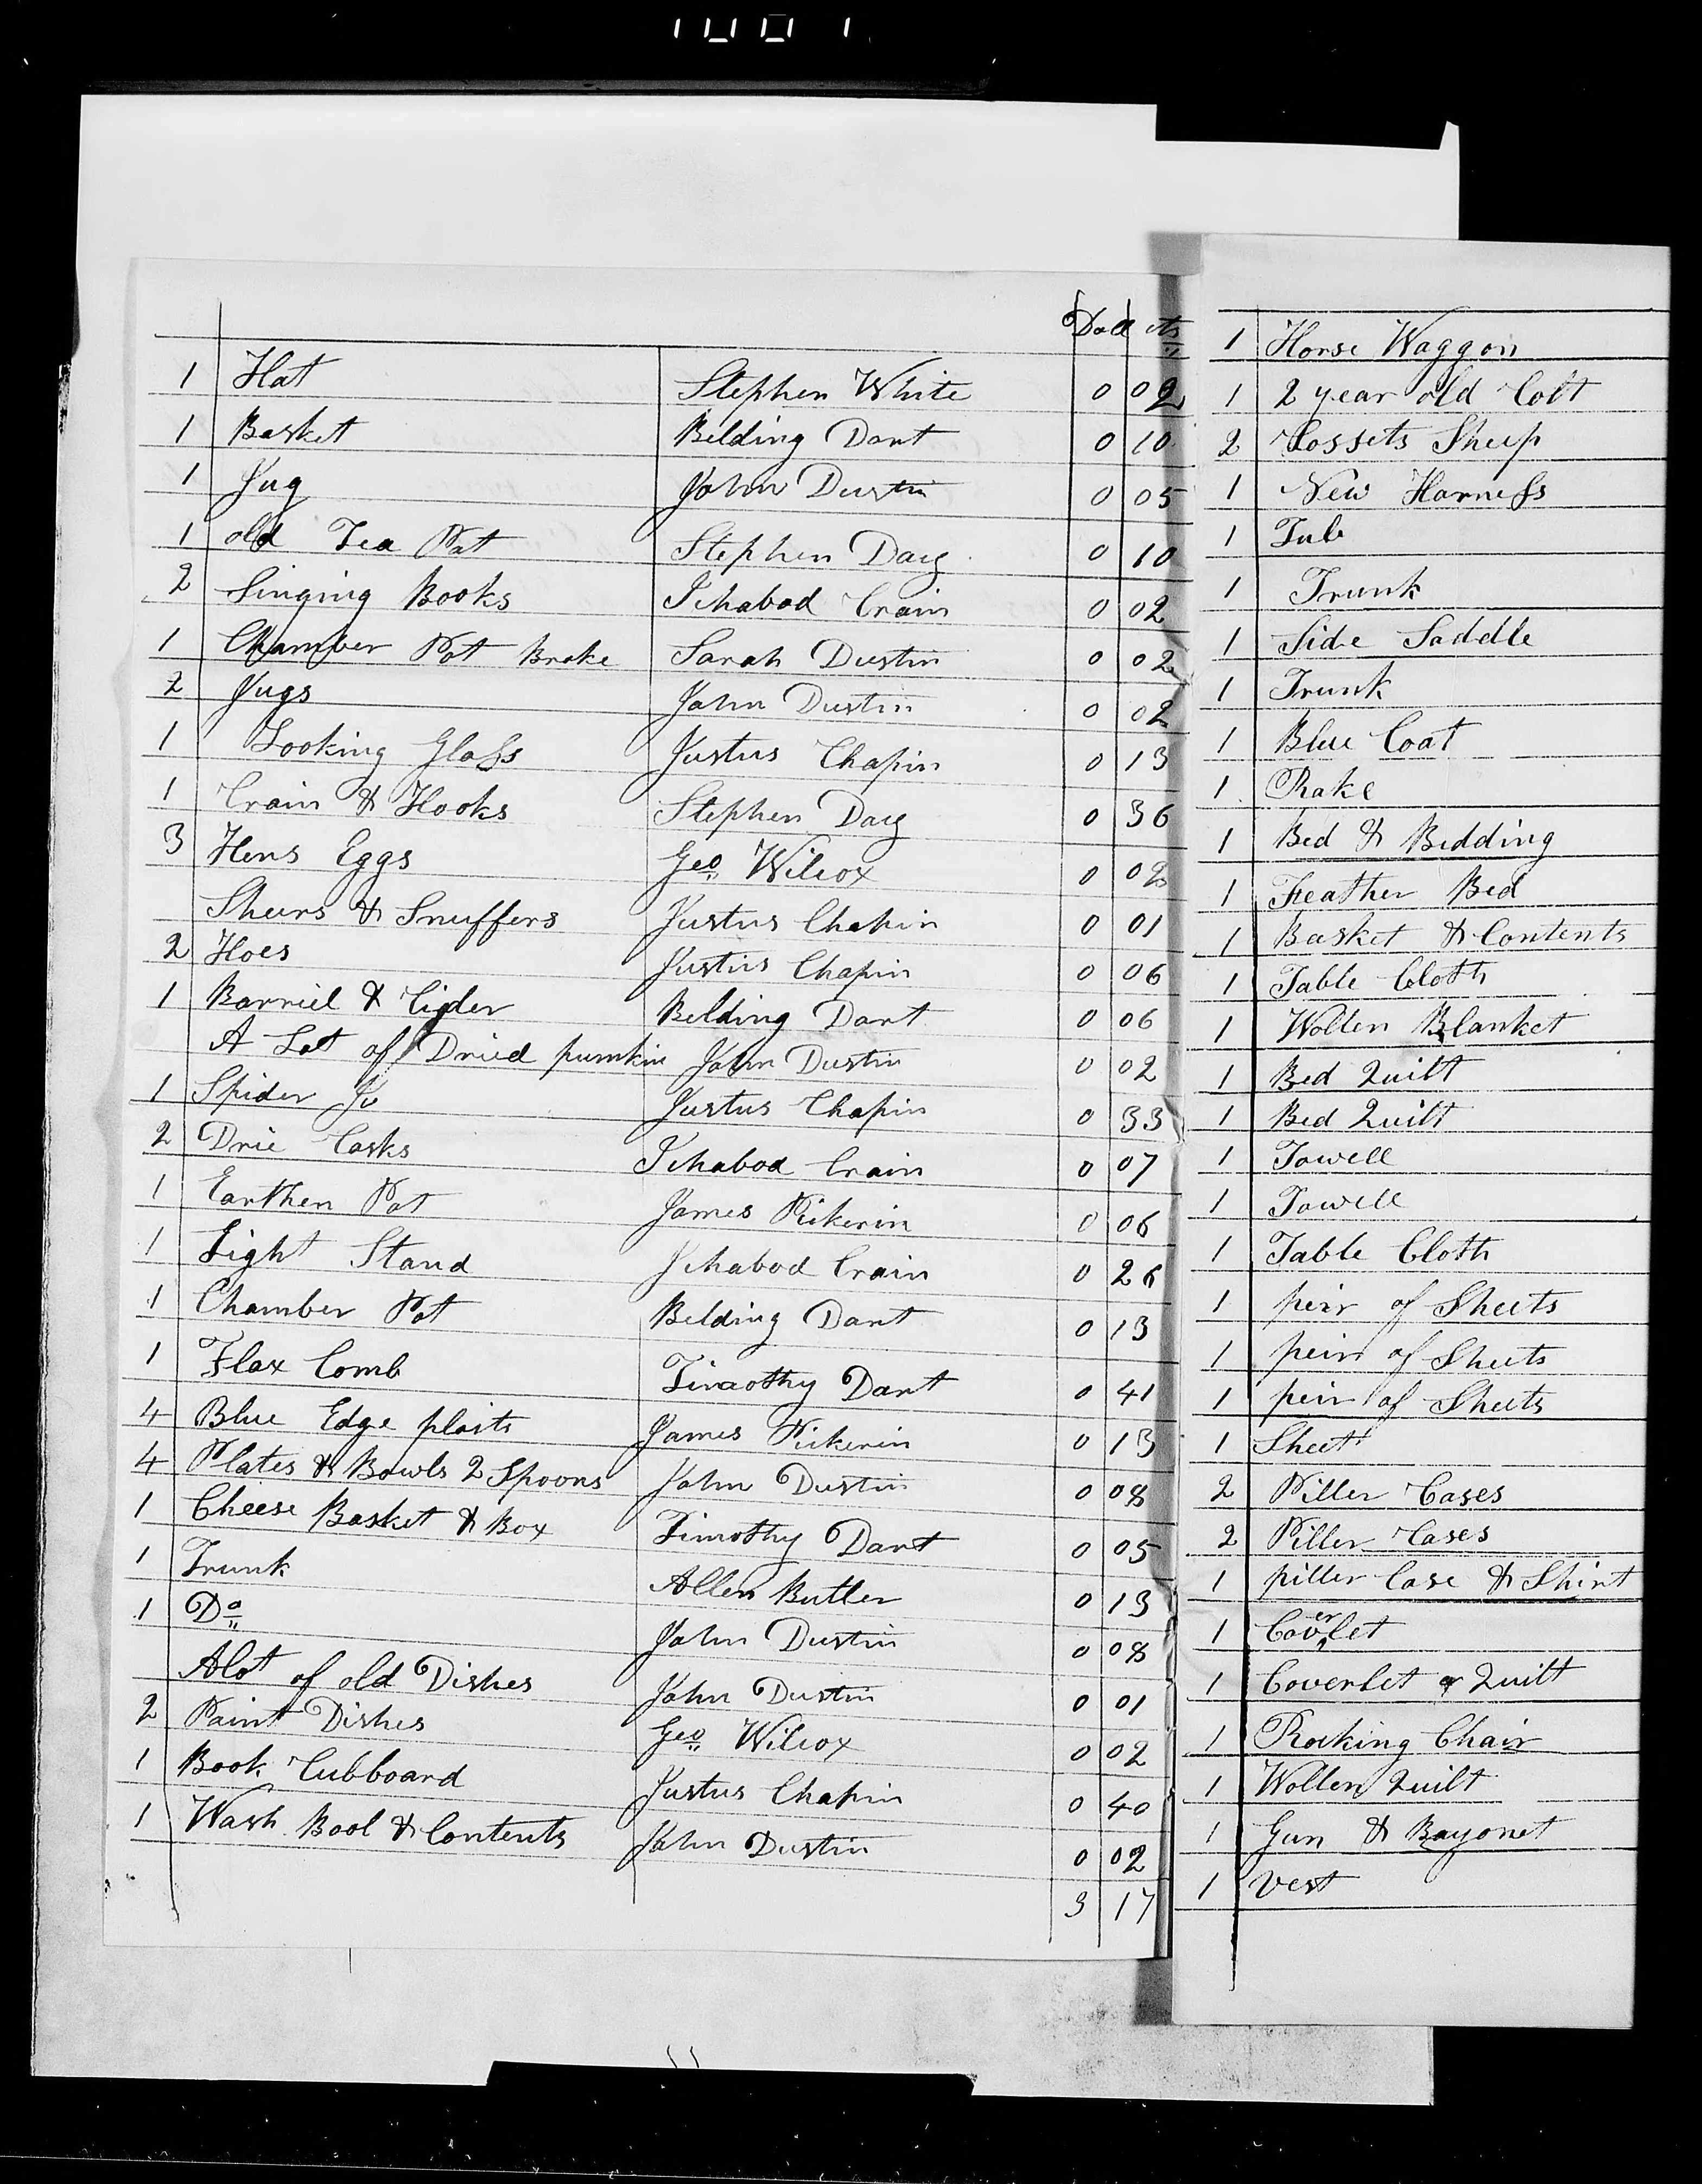 Doll cts
1 Hat Stephen White 0 02
1 Basket Belding Dart 0 10
1 Jug John Dustin 0 05
1 old Tea Pot Stephen Day 0 10
2 Singing Books Ichabod Crain 0 02
1 Chamber Pot Broke Sarah Dustin 0 02
2 Jugs John Dustin 0 02
1 Looking Glass Justus Chapin 0 13
1 Crain & Hooks Stephen Day 0 36
3 Hens Eggs Geo Wilcox 0 02
Shears & Snuffers Justus Chapin 0 01
2 Hoes Justus Chapin 0 06
1 Barriel & Cider Belding Dart 0 06
A Lot of Dried pumkin John Dustin 0 02
1 Spider Justus Chapin 0 33
2 Drie Casks Ichabod Crain 0 07
1 Earthen Pot James Pickerin 0 06
1 Light Stand Ichabod Crain 0 26
1 Chamber Pot Belding Dart 0 13
1 Flax Comb Timothy Dart 0 41
4 Blue Edge plaits James Pickerin 0 13
4 Plates & Bowls 2 Spoons John Dustin 0 08
1 Cheese Basket & Box Timothy Dart 0 05
1 Trunk Allen Butler 0 13
1 Do John Dustin 0 08
Alot of old Dishes John Dustin 0 01
2 Paint Dishes Geo Wilcox 0 02
1 Book Cubboard Justus Chapin 0 40
1 Wash Bool & Contents John Dustin 0 02
3 17
1 Horse Waggon
1 2 year old Colt
2 Cossets Sheep
1 New Harness
1 Tub
1 Trunk
1 Side Saddle
1 Trunk
1 Blue Coat
1 Rake
1 Bed & Bedding
1 Feather Bed
1 Basket & Contents
1 Table Cloth
1 Wollen Blanket
1 Bed Quilt
1 Bed Quilt
1 Towell
1 Towell
1 Table Cloth
1 peir of Sheets
1 peir of Sheets
1 peir of Sheets
1 Sheet
2 Piller Cases
2 Piller Cases
1 piller Case & Shirt
1 Coverlet
1 Coverlet or Quilt
1 Rocking Chair
1 Wollen Quilt
1 Gun & Bayonet
1 vest